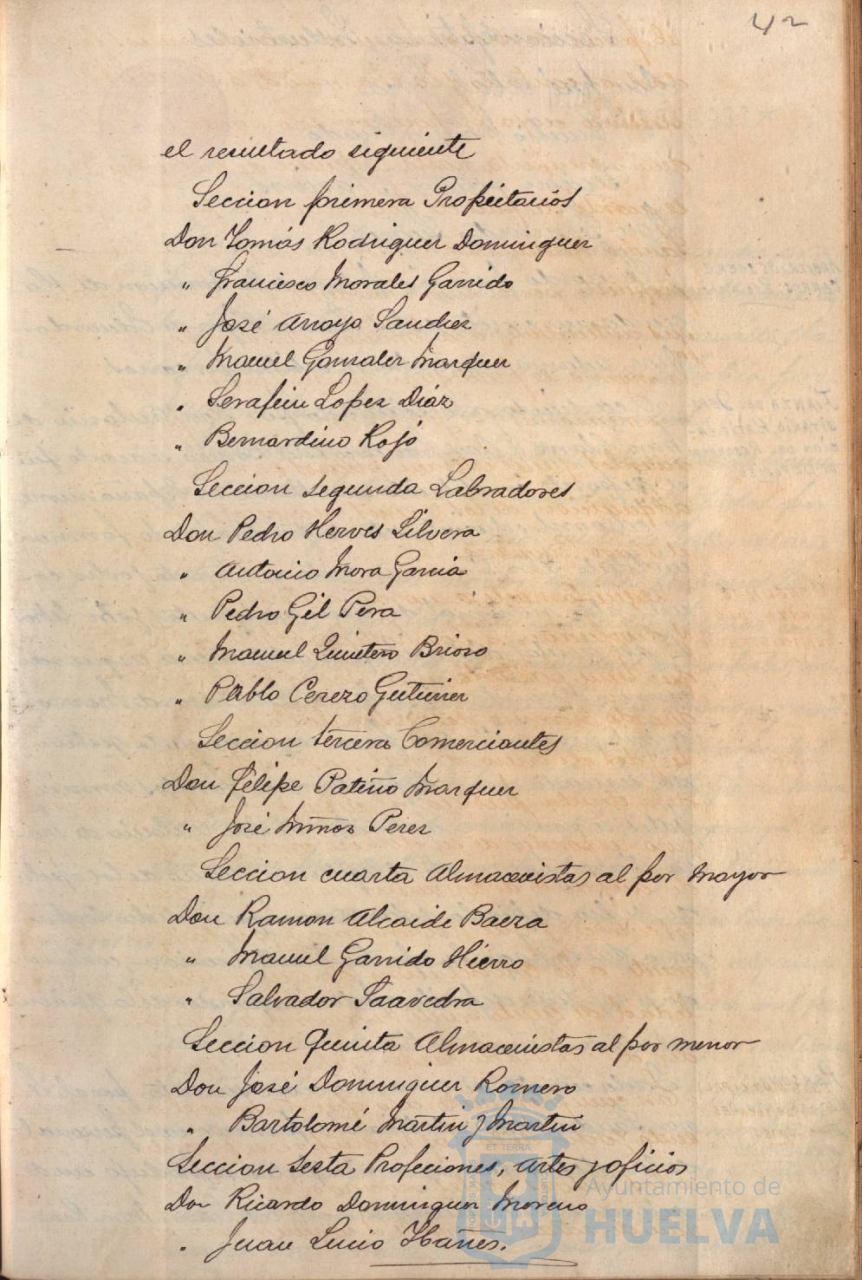 42
el resultado siguiente
Seccion primera Propietarios
Don Tomás Rodriguez Dominguez
" Francisco Morales Garrido
" José Arroyo Sanchez
" Manuel Gonzalez Marquez
" Serafin Lopez Diáz
" Bernardino Rojo
Seccion segunda Labradores
Don Pedro Herves Silvera
" Antonio Mora Garcia
" Pedro Gil Pera
" Manuel Quintero Brioso
" Pablo Cerezo Gutierrez
Seccion tercera Comerciantes
Don Felipe Patiño Marquez
" José Muñoz Perez
Seccion cuarta Almacenistas al por mayor
Don Ramon Alcaide Baeza
" Manuel Garrido Hierro
" Salvador Saavedra
Seccion quinta Almacenistas al por menor
Don José Dominguez Romero
" Bartolomé Martin y Martin
Seccion sesta Profeciones, artes y oficios
Don Ricardo Dominguez Moreno
" Juan Lucio Ibañes.
Ayuntamiento de
HUELVA